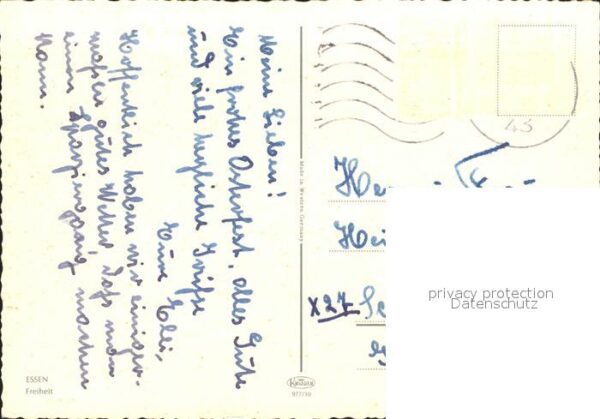 Meine Lieben!
Ein frohes Osterfest, alles Gute
und viele herzliche Grüße
Eure Elli,
Hoffentlich haben wir einiger-
maßen gutes Wetter, daß man
einen Spaziergang machen
kann.
ESSEN
Freiheit
Made in Western Germany
Krüger
977/10
45
X27
privacy protection
Datenschutz